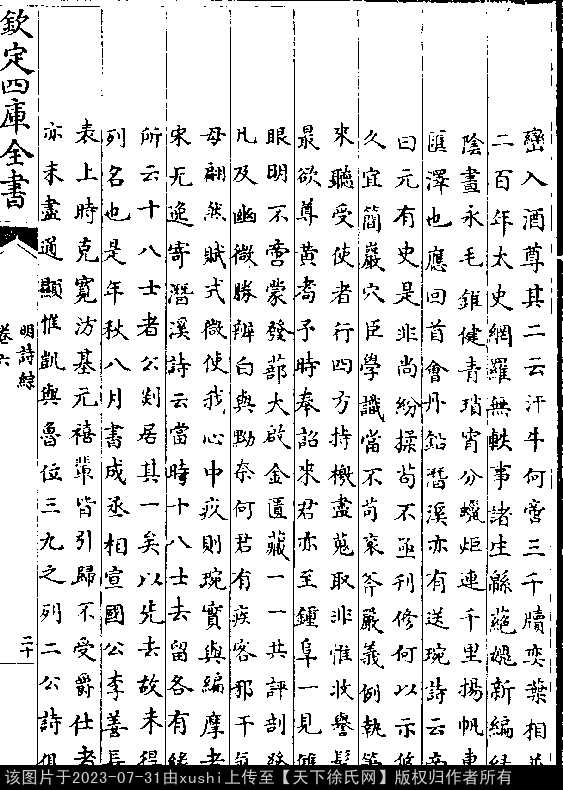 巒入酒尊其二云汗牛何啻三千牘奕葉相
二百年太史網羅無軼事諸生緜蕝媲新編
陰晝永毛錐健青瑣宵分蠟炬連千里揚帆東
匯澤也應回首會丹鉛潛溪亦有送琬詩云帝
曰元有史是非尚紛揉苟不亟刊修何以示悠
久宜簡巖穴臣學識當不苟袞斧嚴義例執筆
來聽受使者行四方持檄盡蒐取非惟收譽髦
最欲尊黄耇予時奉詔來君亦至鍾阜一見雙
眼明不啻蒙發蔀大啟金匱藏一一共評剖發
凡及幽微勝辨白與黝奈何君有疾客邪干氣
母翩然賦式微使我心中疚則琬實與編摩者
宋无逸寄潛溪詩云當時十八士去留各有緣
所云十八士者公剡居其一矣以先去故未得
列名也是年秋八月書成丞相宣國公李善長
表上時克寛汸基元禧輩皆引歸不受爵仕者
亦未盡通顯惟凱與魯位三九之列二公詩俱
欽定四庫全書
明詩綜
卷六
二十
该图片于2023-07-31由xushi上传至【天下徐氏网】版权归作者所有